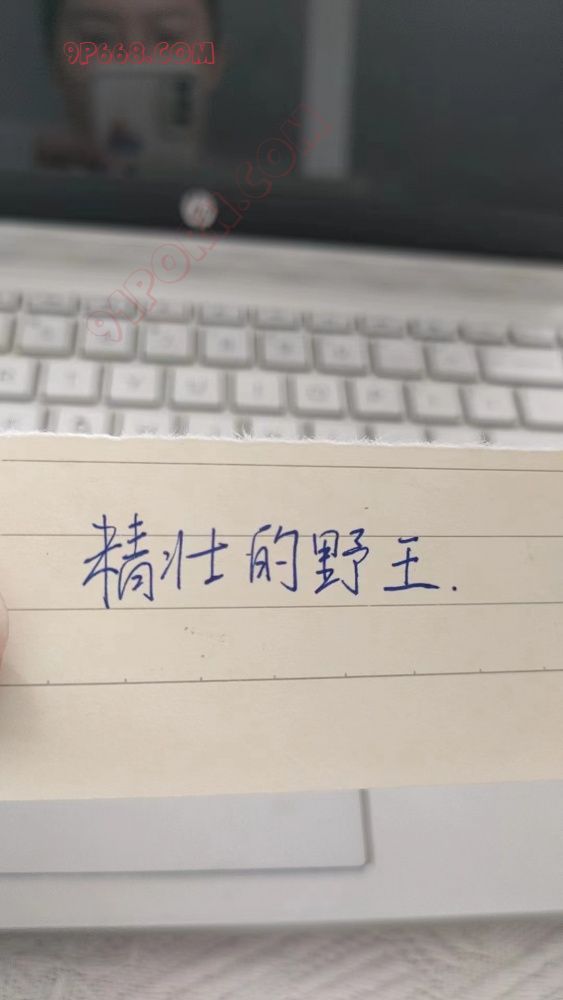 9P668.COM
91PORN.COM
hp
精壮的野王.